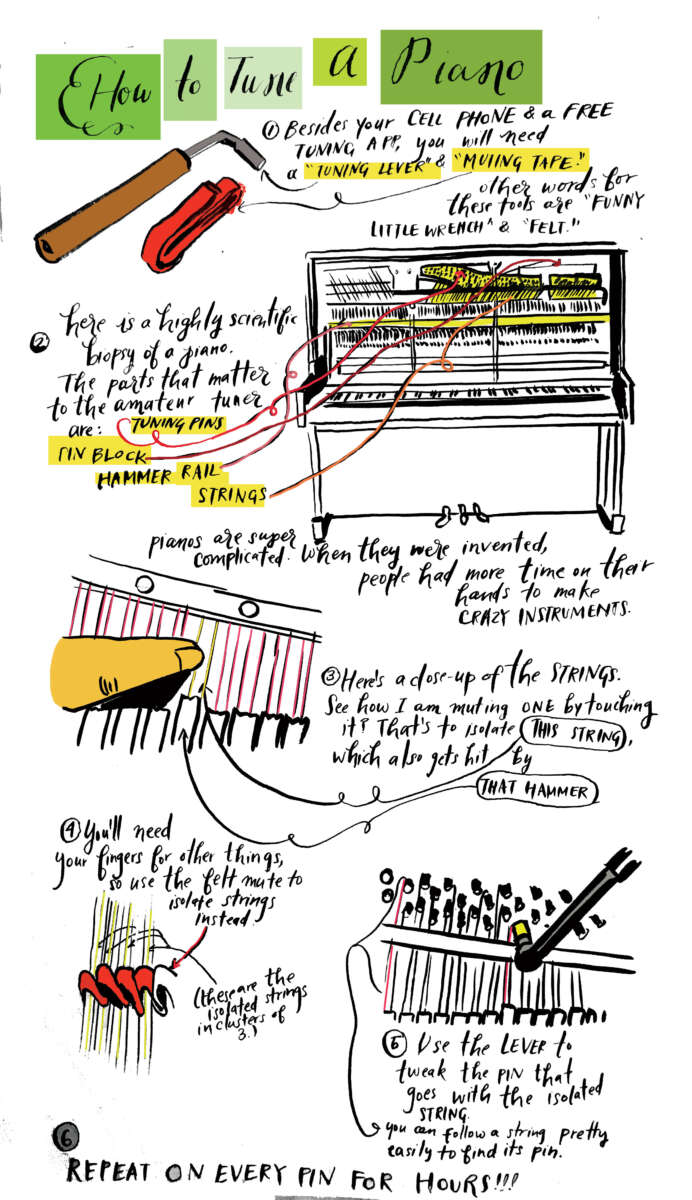 How to Tune A Piano
① Besides your CELL PHONE & a FREE
TUNING APP, you will need
a "TUNING LEVER" & "MUTING TAPE."
other words for
these tools are "FUNNY
LITTLE WRENCH" & "FELT."
② here is a highly scientific
biopsy of a piano.
The parts that matter
to the amateur tuner
are: TUNING PINS
PIN BLOCK
HAMMER RAIL
STRINGS
pianos are super
complicated. When they were invented,
people had more time on their
hands to make
CRAZY INSTRUMENTS.
③ Here's a close-up of the STRINGS.
See how I am muting ONE by touching
it? That's to isolate THIS STRING,
which also gets hit by
THAT HAMMER
④ You'll need
your fingers for other things,
so use the felt mute to
isolate strings
instead.
(these are the
isolated strings
in clusters of
3.)
⑤ Use the LEVER to
tweak the PIN that
goes with the isolated
STRING.
you can follow a string pretty
easily to find its pin.
⑥
REPEAT ON EVERY PIN FOR HOURS!!!